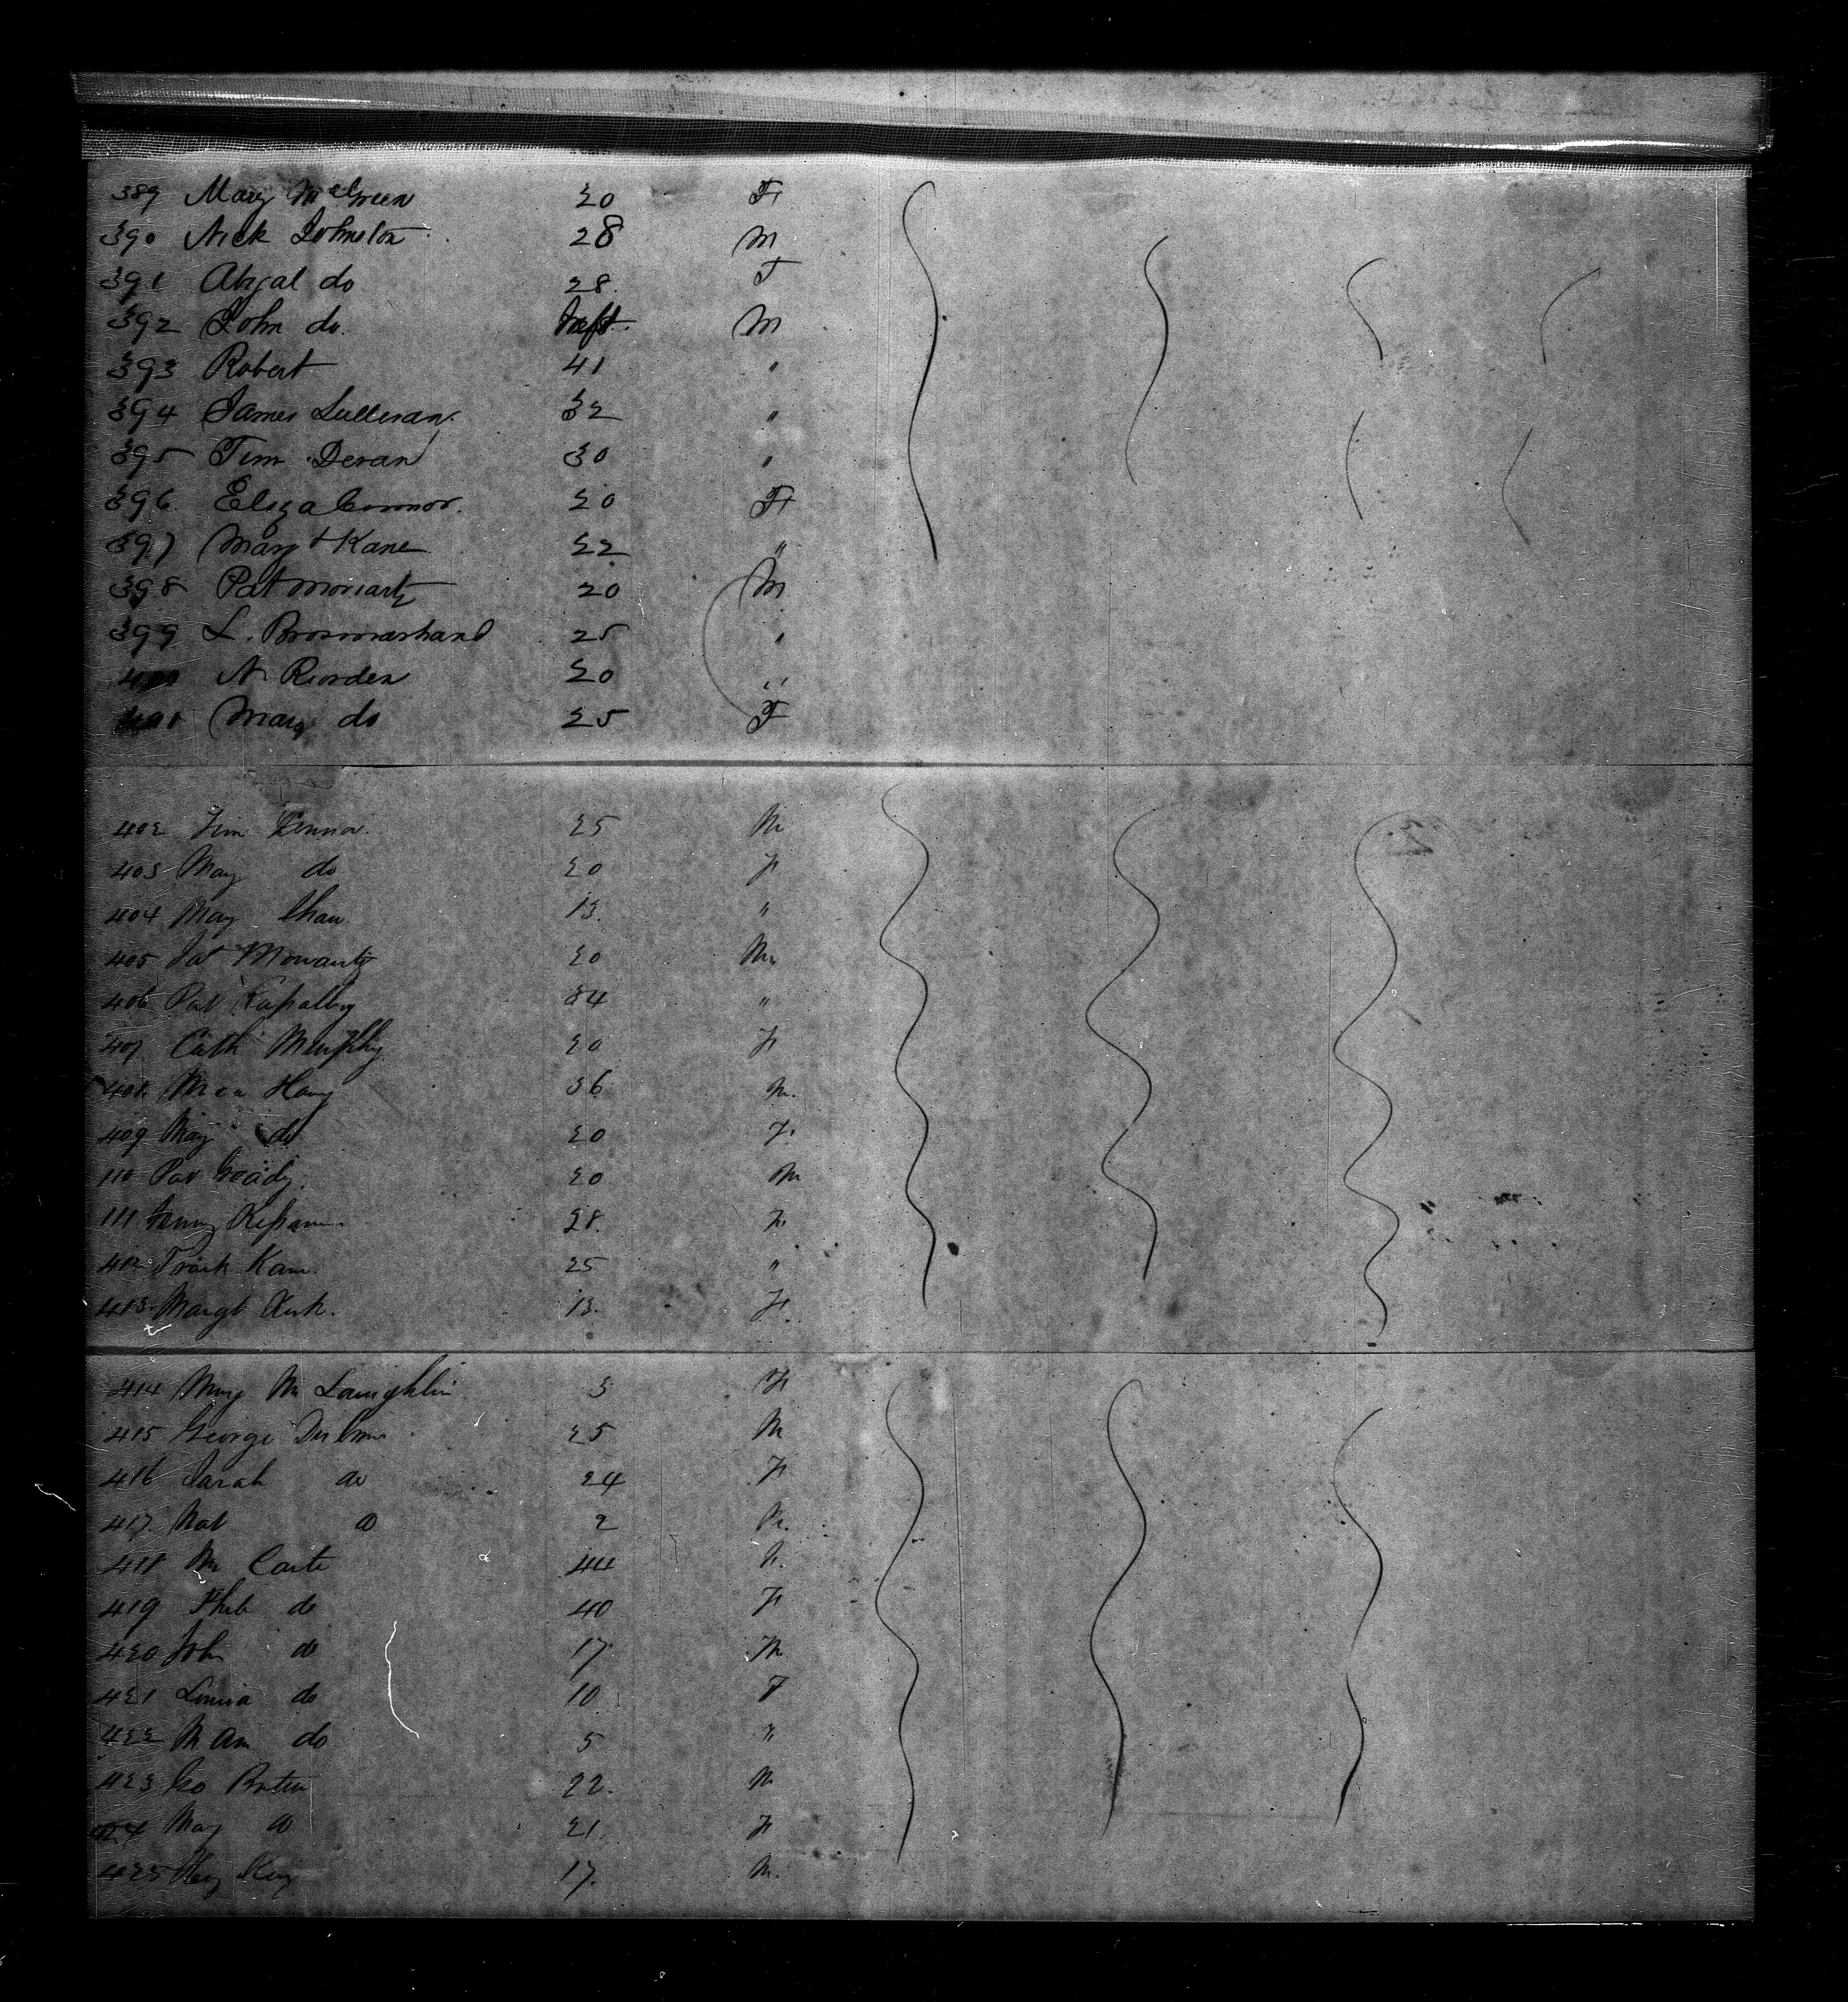 389 Mary McGreen 20 F
390 Nick Johnston 28 M
391 Abgal do 28 F
392 John do. Inft. M
393 Robert 41 "
394 James Sullivan 32 "
395 Tim Devan 30 "
396 Eliza Connor. 20 F
397 Mary Kane 22 "
398 Pat Moriarty 20 M
399 L. 25 "
400 N Riorden 20 "
401 Mary do 25 F
402 Tim Connor 25 M
403 Mary do 20 F
404 Mary 13. "
405 Pat Moriarty 20 M
406 Pat 34 "
407 Cath Murphy 20 F
408 36 M.
409 Mary do 20 F.
110 Pat Grady. 20 M
111 28. F
412 Kane. 25 "
413. Margt Kirk. 13. F
414 Mary Mc Laughlin 3 F
415 George 25 M
416 Sarah do 24 F
417 Nat do 2 M.
418 Wm Carte 44 M.
419 Pheb do 40 F
420 John do 17 M
421 Louisa do 10 F
422 M Am do 5 "
423 Geo 22. M
424 Mary do 21. F
425 Hey King 17. M.